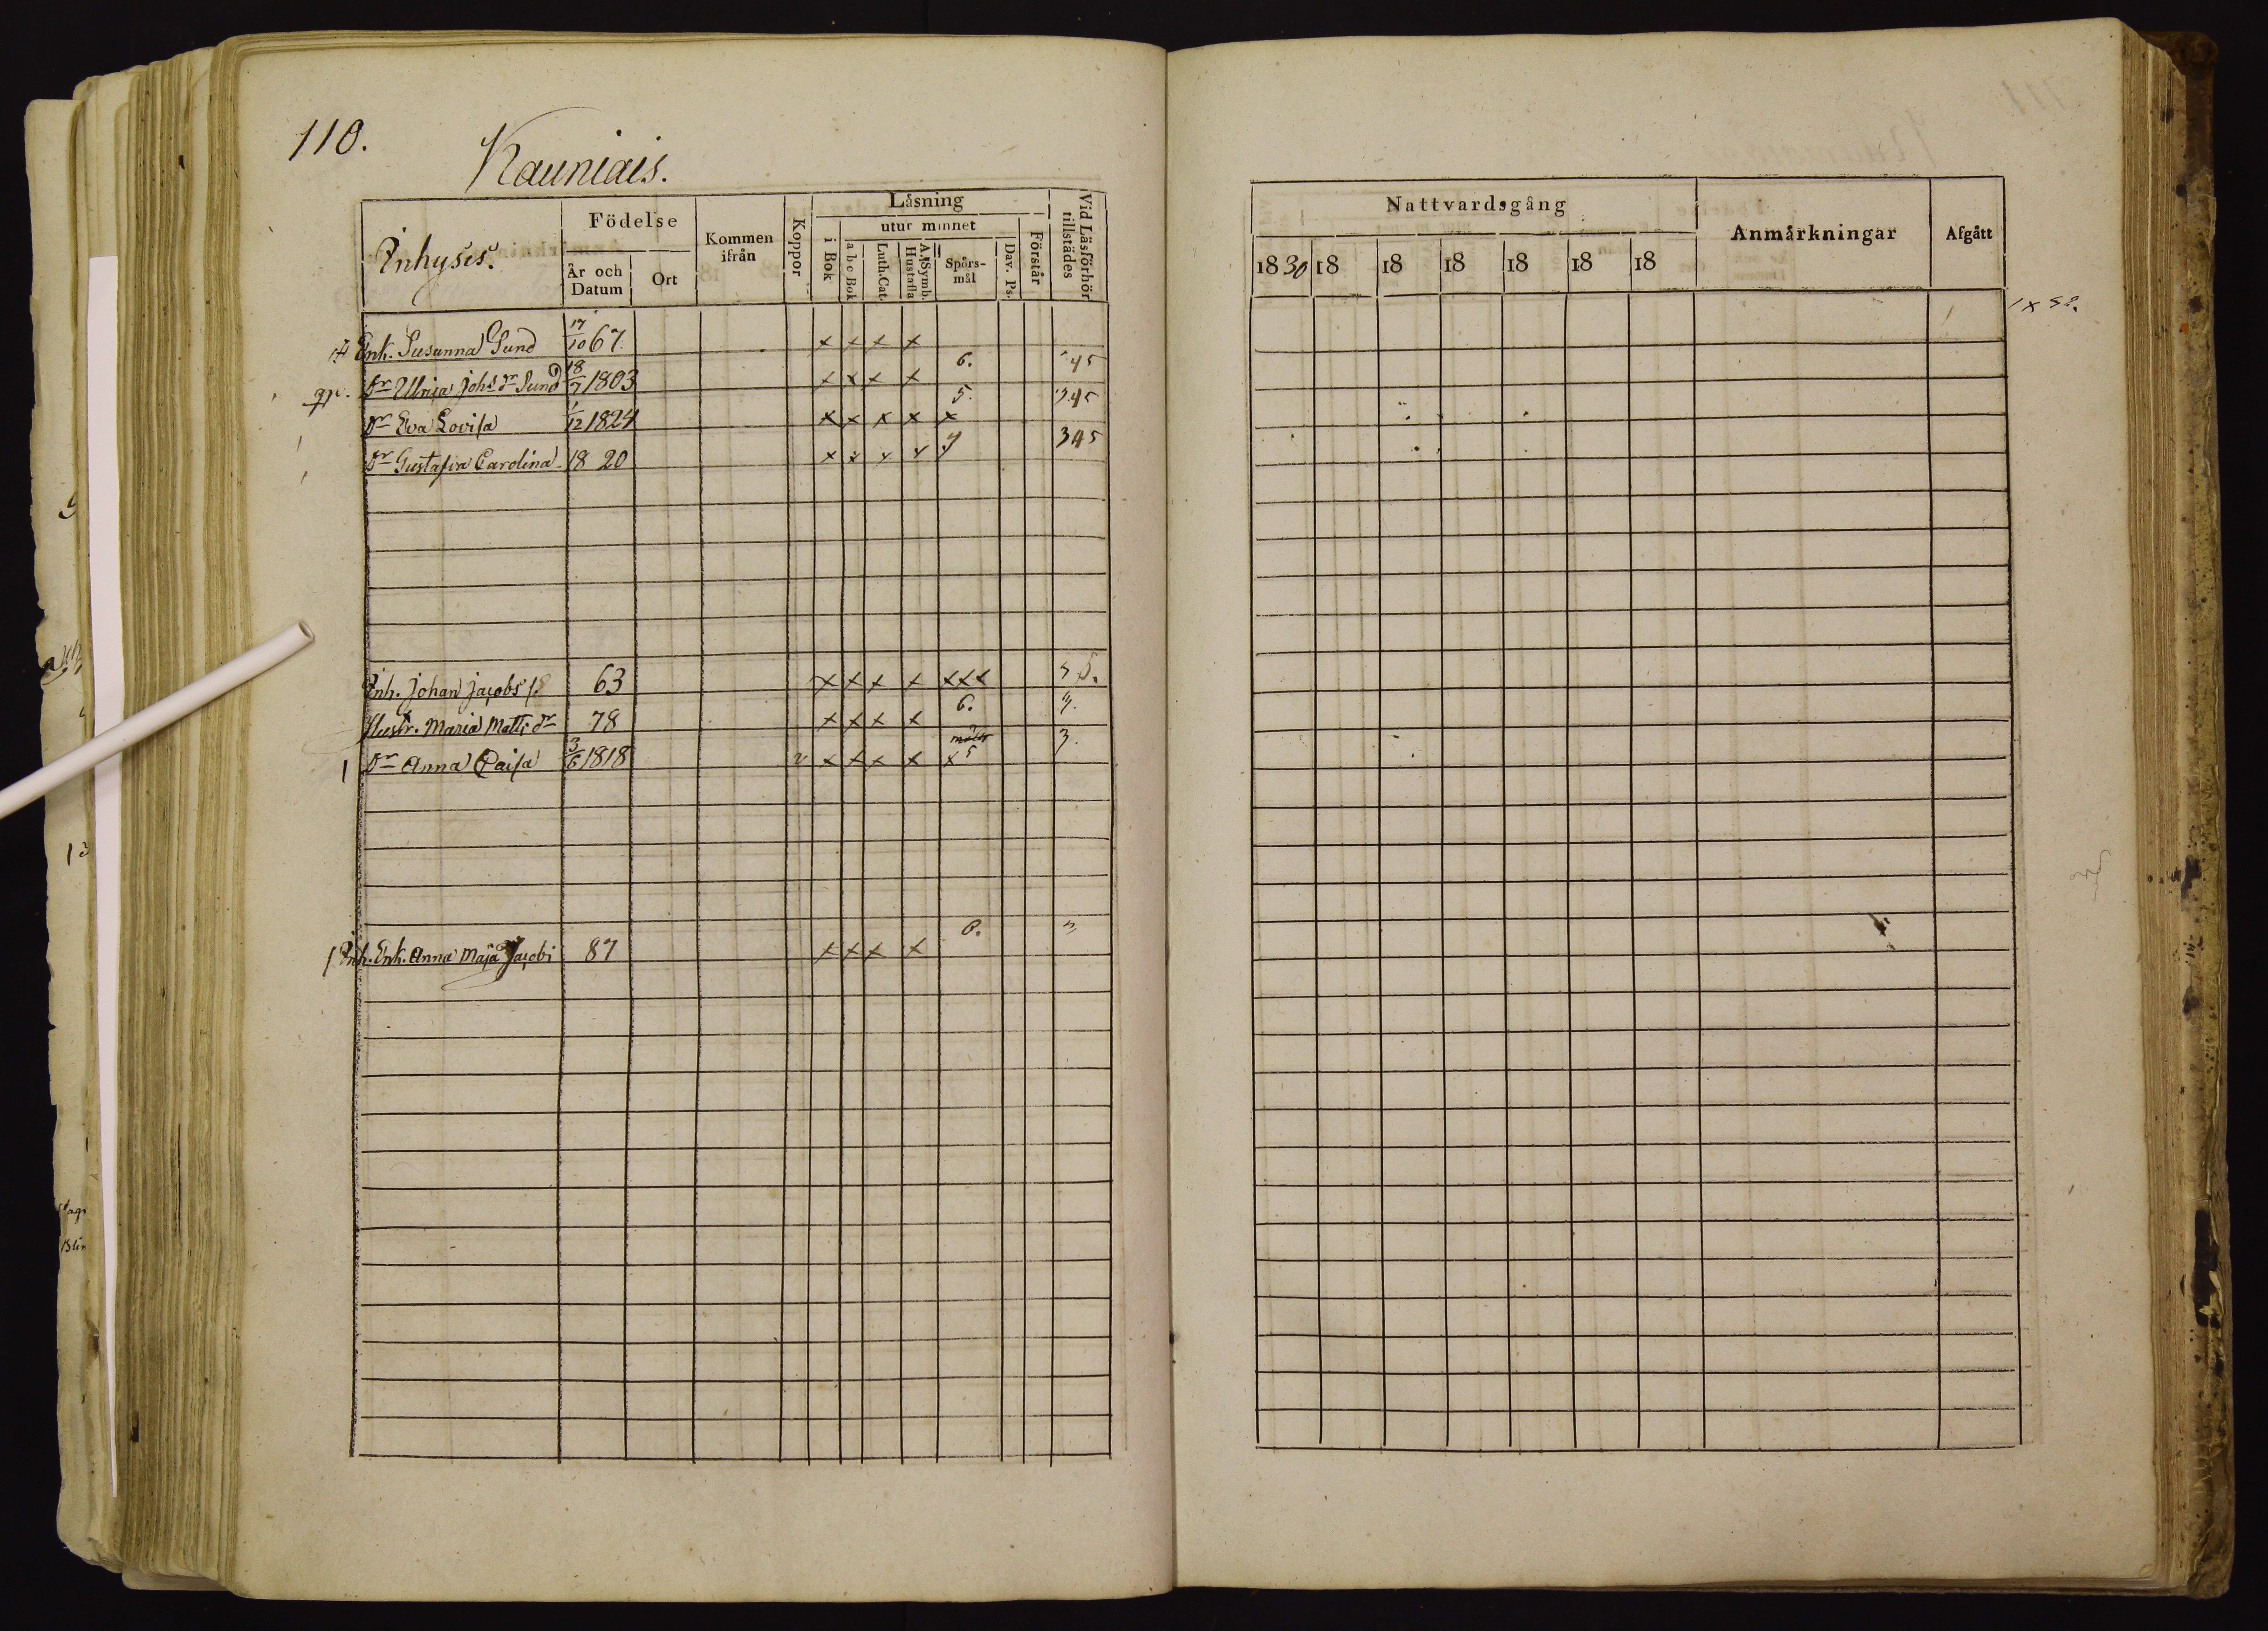 110.
Kauniais.
Inhyses.
Födelse
År och Datum
Ort
Kommen ifrån
Koppor
Läsning
i Bok
utur minnet
a b c Bok
Luth. Cat.
A. Symb. Hustafla
Spörs-mål
Dav. Ps.
Förstår
Vid Läsförhör tillstädes
Enk. Susanna Sund 17/10 67. x x x x
6. 45
Dr Ulrica Johs dr Sund 18/7 1803 x x x x
5. 345
Dr Eva Lovisa 1/12 1824 x x x x x
345
Dr Gustafva Carolina 18 20 x x x x
Inh. Johan Jacobs s. 63 x x x x xxx
6. 3.
Hustr. Maria Matts dr 78 x x x x
3.
1 Dr Anna Caisa 3/6 1818 v x x x x x 5
Inh. Enk. Anna Maja Jacobi 87 x x x x
Nattvardsgång
Anmärkningar
Afgått
1830 18 18 18 18 18 18